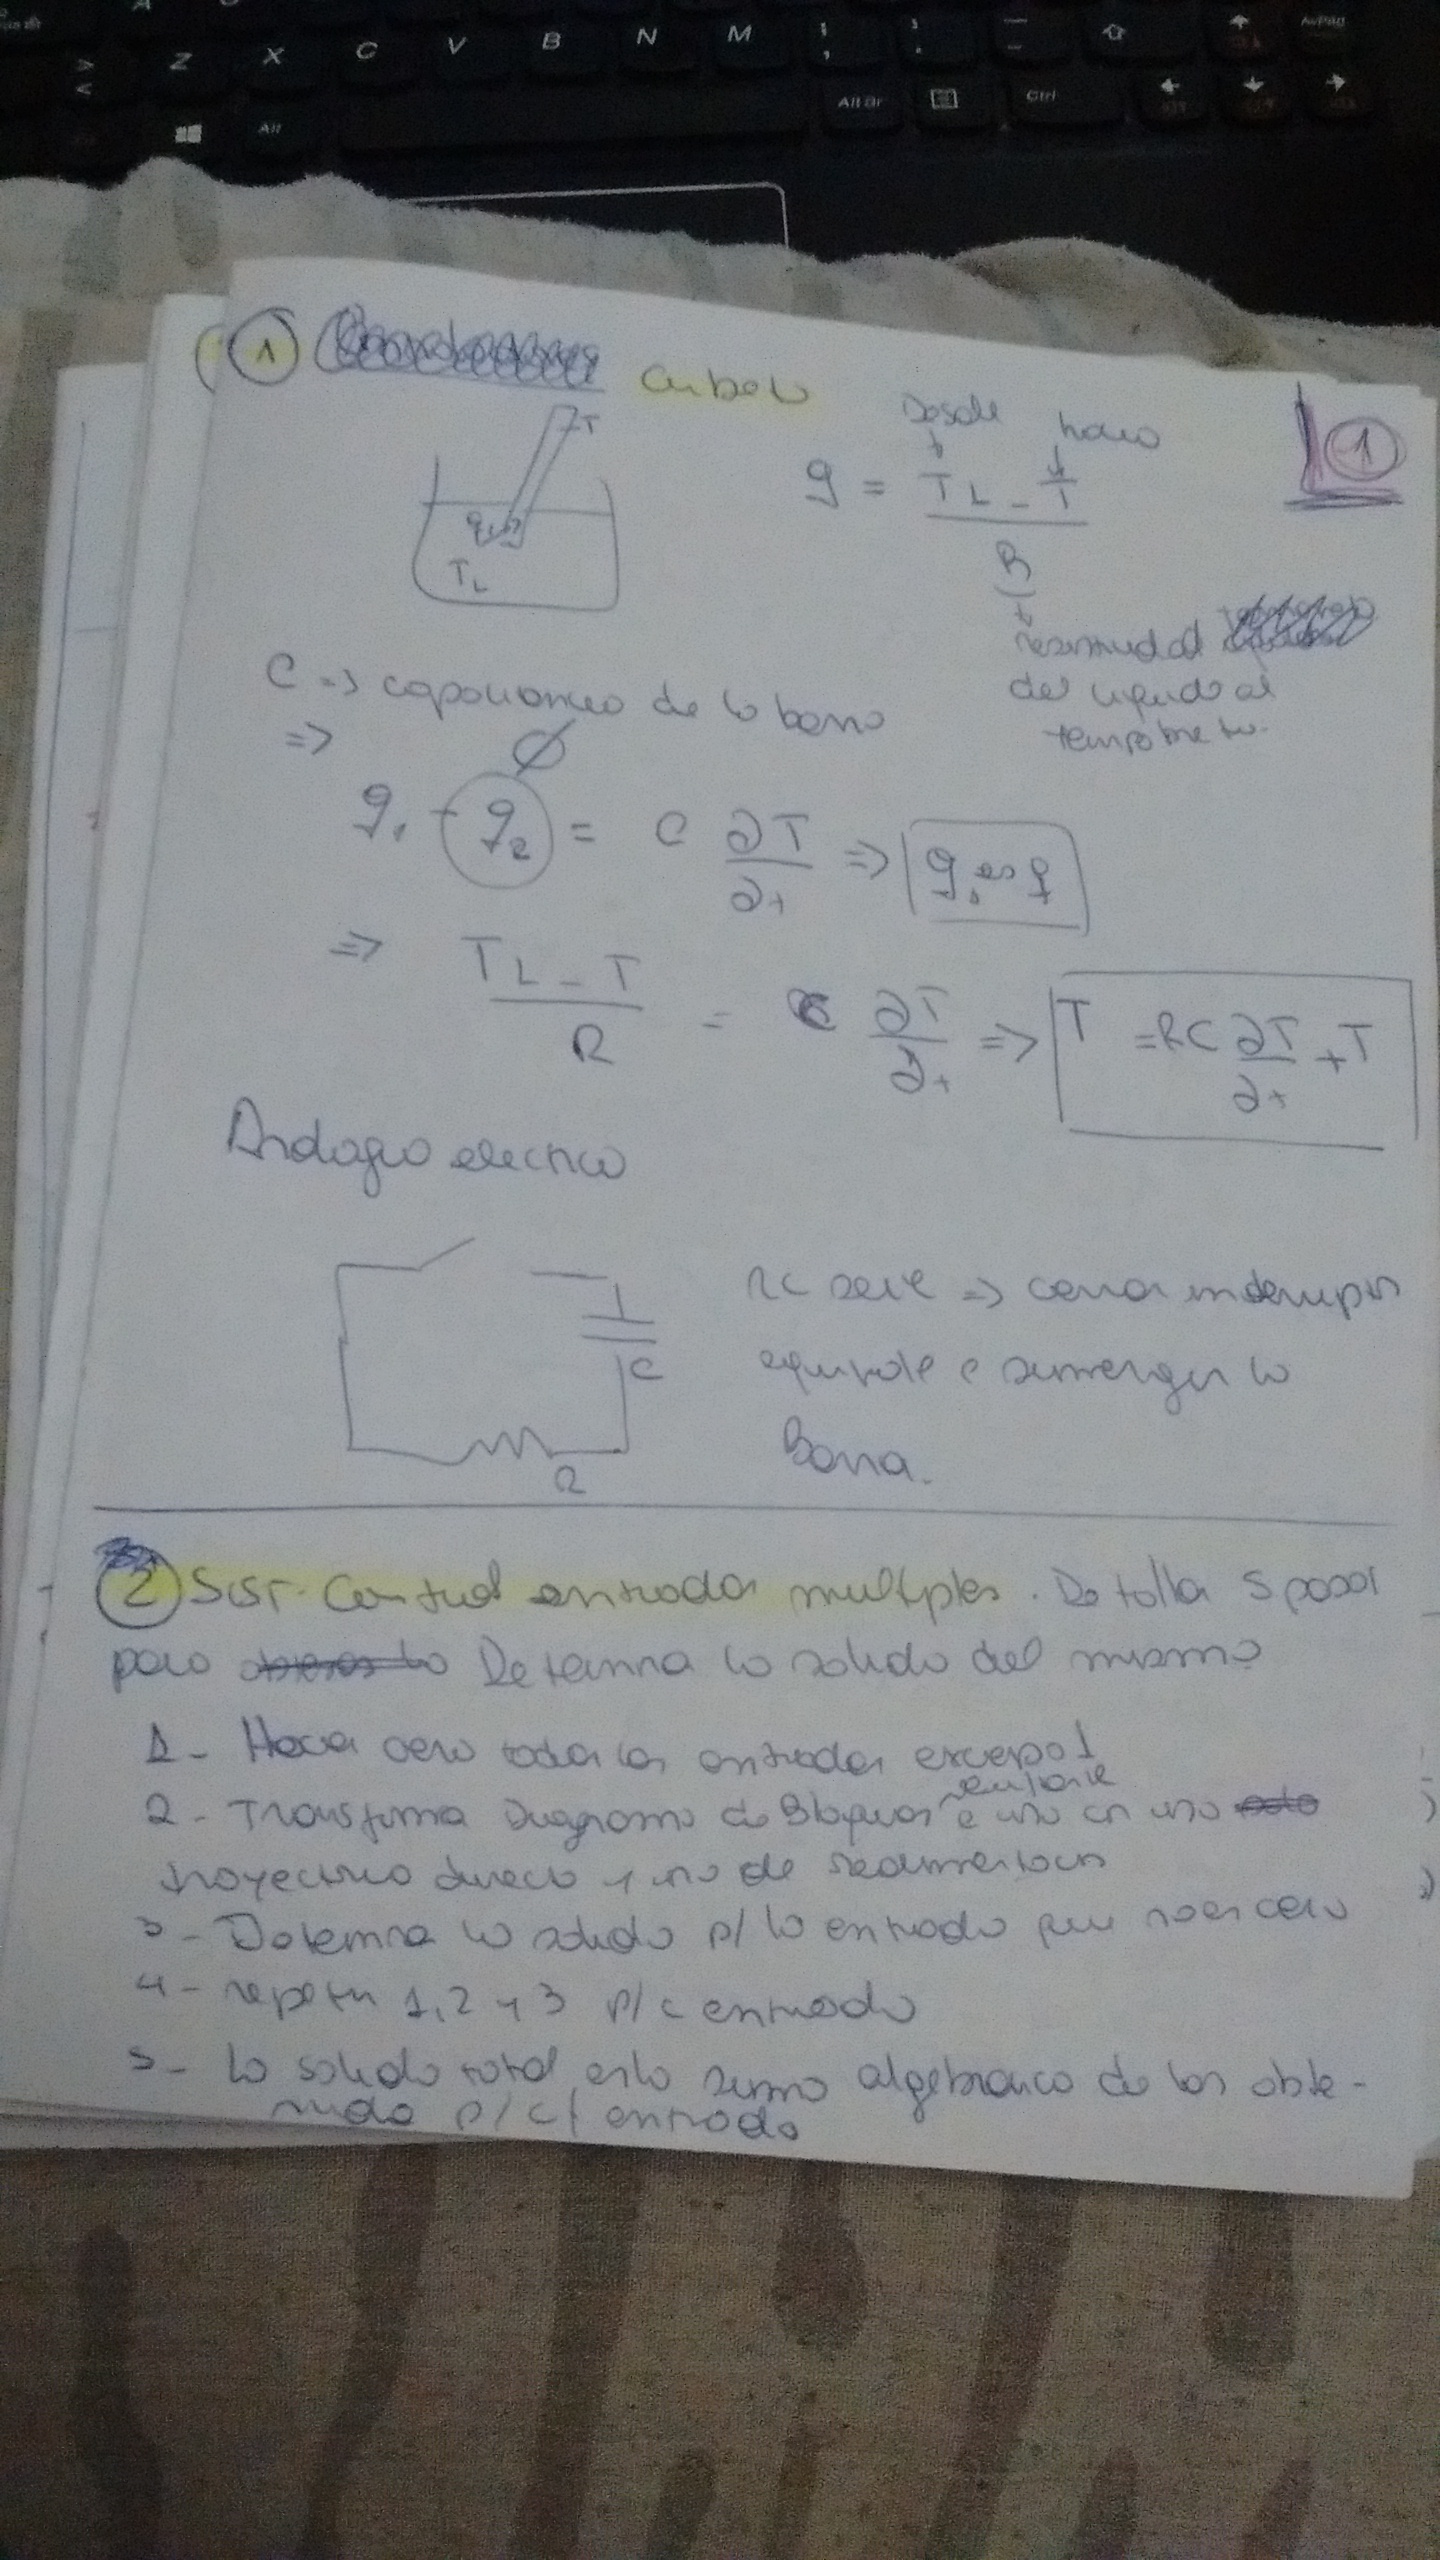 Z X C V B N M ; , : . _ -
> < Alt Alt Gr Ctrl
1 Cubeta
Desde hacia
T
q = TL - T
1
q1
TL
R
resistividad
C => capacitancia de la barra
del liquido al
=> Ø
termómetro.
q1 - q2 = C ∂T => q1 es q
∂t
=> TL - T = C ∂T => T = RC ∂T + T
R ∂t ∂t
Analogía electrico
RC serie => cerrar interruptor
C
equivale a sumergir la
R
Barra.
2 SIST. Control entradas multiples. Detallar 5 pasos
para Determinar la salida del mismo
1- Hacer cero todas las entradas excepto 1
2- Transformar Diagrama de Bloques e uno en una
trayectoria directa y una de realimentacion
3- Determinar la salida p/ la entrada que no es cero
4- repetir 1, 2 y 3 p/c entrada
5- la salida total es la suma algebraica de las obte-
nida p/c/ entrada